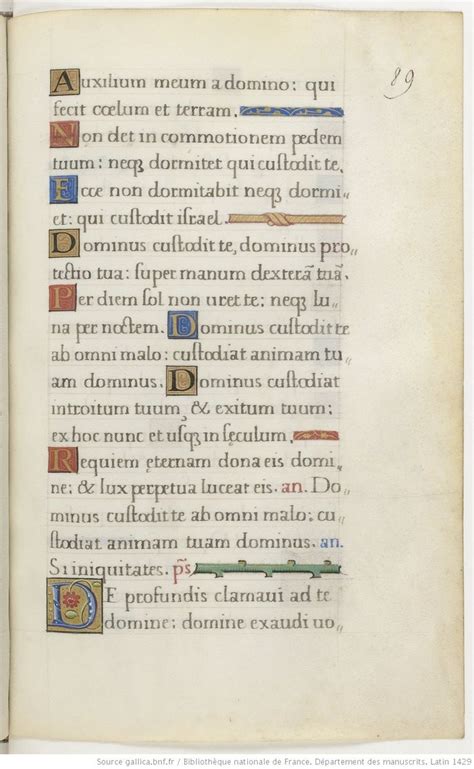 89
Auxilium meum a domino: qui
fecit cœlum et terram.
Non det in commotionem pedem
tuum: neqꝫ dormitet qui custodit te.
Ecce non dormitabit neqꝫ dormi〃
et: qui custodit israel.
Dominus custodit te, dominus pro〃
tectio tua: super manum dexterã tuã.
Per diem sol non uret te: neqꝫ lu〃
na per noctem. Dominus custodit te
ab omni malo: custodiat animam tu〃
am dominus. Dominus custodiat
introitum tuum, & exitum tuum:
ex hoc nunc et usqꝫ in sęculum.
Requiem ęternam dona eis domi〃
ne: & lux perpetua luceat eis. an. Do〃
minus custodit te ab omni malo: cu〃
stodiat animam tuam dominus. an.
Si iniquitates. ps̃
De profundis clamaui ad te
domine: domine exaudi uo〃
Source gallica.bnf.fr / Bibliothèque nationale de France. Département des manuscrits. Latin 1429